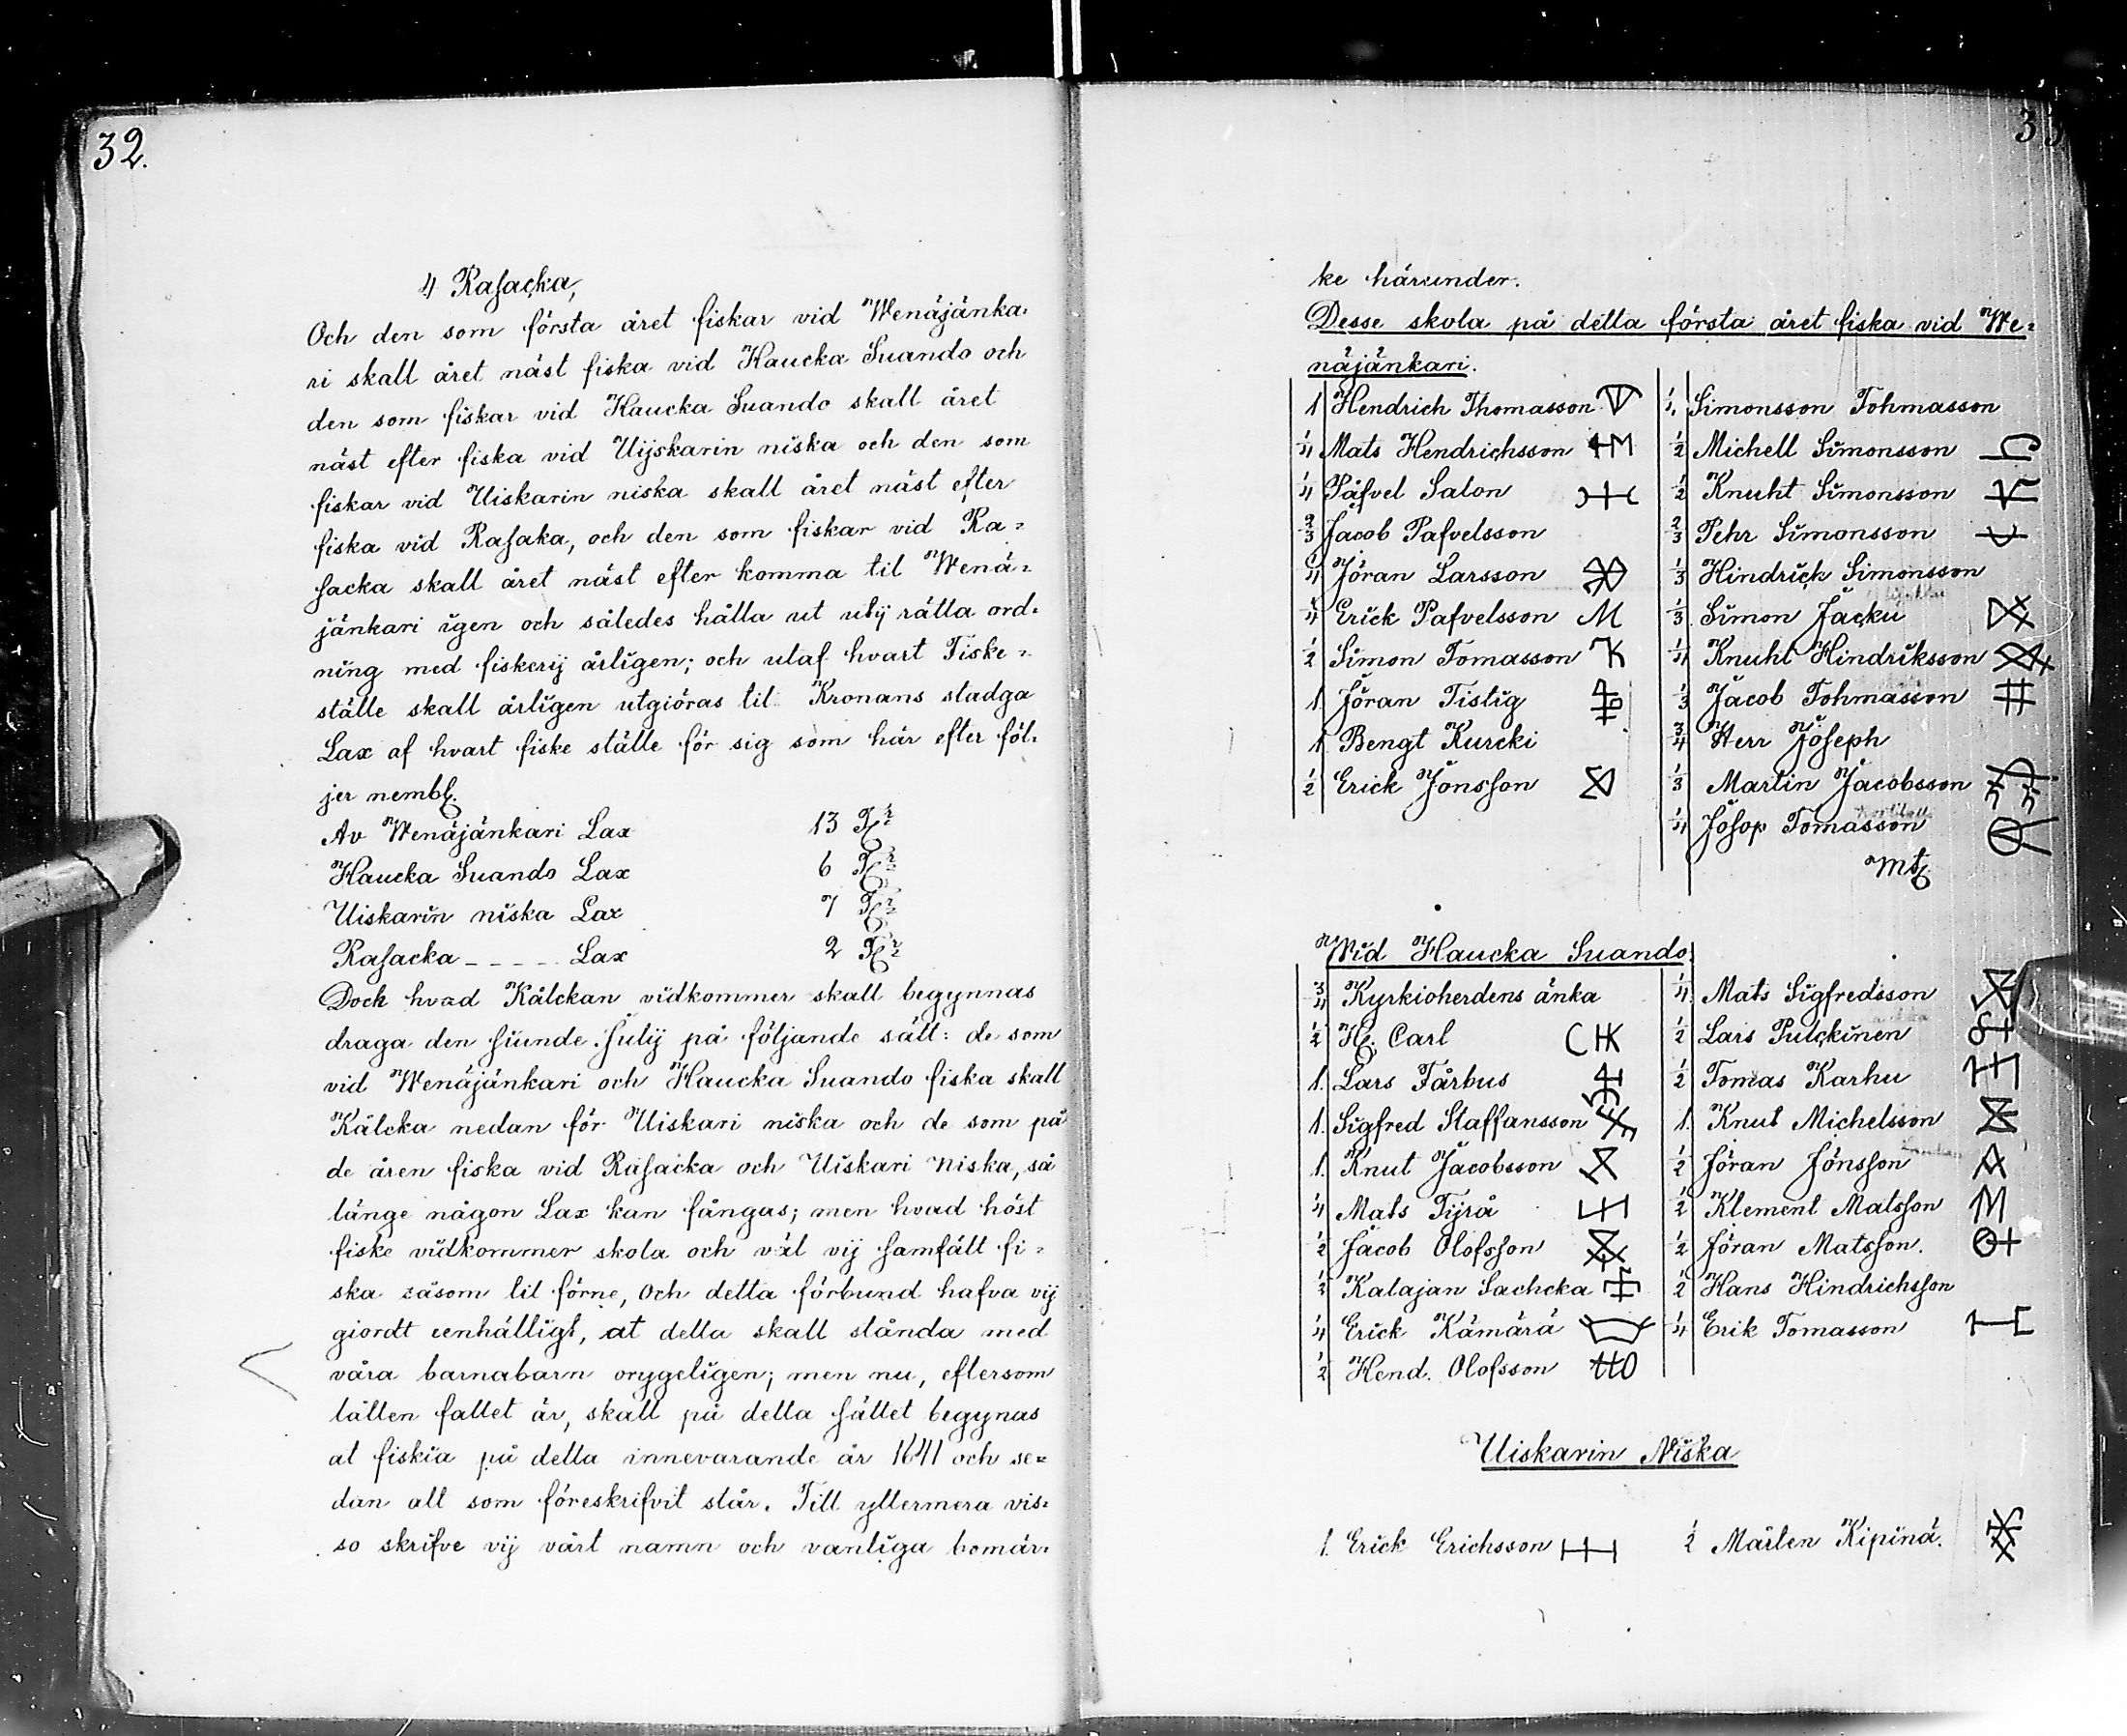 32.
4 Rasacka,
Och den som första året fiskar vid Wenäjänka-
ri skall året näst fiska vid Haucka Suando och
den som fiskar vid Haucka Suando skall året
näst efter fiska vid Uijskarin niska och den som
fiskar vid Uiskarin niska skall året näst efter
fiska vid Rasaka, och den som fiskar vid Ra=
sacka skall året näst efter komma til Wenä=
jänkari igen och således hålla ut utij rätta ord=
ning med fiskerij årligen; och utaf hvart Fiske=
ställe skall årligen utgiöras til Kronans stadga
Lax af hvart fiske ställe för sig som här efter föl=
jer nembl.
Av Wenäjänkari Lax 13
Haucka Suando Lax 6
Uiskarin niska Lax 7
Rasacka - - - - - Lax 2
Dock hvad Kålckan vidkommer skall begynnas
draga den siunde Julij på följande sätt: de som
vid Wenäjänkari och Haucka Suando fiska skall
Kålcka nedan för Uiskari niska och de som på
de åren fiska vid Rasacka och Uiskari Niska, så
länge någon Lax kan fångas; men hvad höst
fiske vidkommer skola och väl vij samfält fi=
ska såsom til förne, Och detta förbund hafva vij
giordt eenhälligt, at detta skall stånda med
våra barnabarn orygeligen; men nu, eftersom
låtten fallet är, skall på detta sättet begynas
at fiskia på detta innevarande år 1641 och se=
dan all som föreskrifvit står. Till yttermera vis=
so skrifve vij vårt namn och vanliga bomär=
33
ke härunder.
Desse skola på detta första året fiska vid We=
näjänkari.
1 Hendrich Thomasson
Simonsson Tohmasson
1/4 Mats Hendrichsson
1/2 Michell Simonsson
1/4 Påfvel Salon
1/2 Knuht Simonsson
2/3 Jacob Pafvelsson
2/3 Pehr Simonsson
1/4 Jöran Larsson
1/3 Hindrich Simonsson
1/4 Erick Pafvelsson M
1/3 Simon Jacku
1/2 Simon Tomasson
1/4 Knuht Hindriksson
1. Jöran Tistig
1/3 Jacob Tohmasson
1 Bengt Kurcki
3/4 Herr Joseph
1/2 Erick Jönsson
1/3 Martin Jacobsson
1/4 Josop Tomasson
Wid Haucka Suando
3/4 Kyrkioherdens änka
1/4 Mats Sigfredsson
1/2 H. Carl
1/2 Lars Pulckinen
1. Lars Fårbus
1/2 Tomas Karhu
1. Sigfred Staffansson
1. Knut Michelsson
1. Knut Jacobsson
1/2 Jöran Jönsson
1/4 Mats Tijrä
1/2 Klement Matsson
1/2 Jacob Olofsson
1/2 Jöran Matsson.
1/2 Kalajan Sachcka
1/2 Hans Hindrichsson
1/4 Erick Kämärä
1/4 Erik Tomasson
1/2 Hend. Olofsson
Uiskarin Niska
1. Erick Erichsson
1/2 Mårten Kipinä.